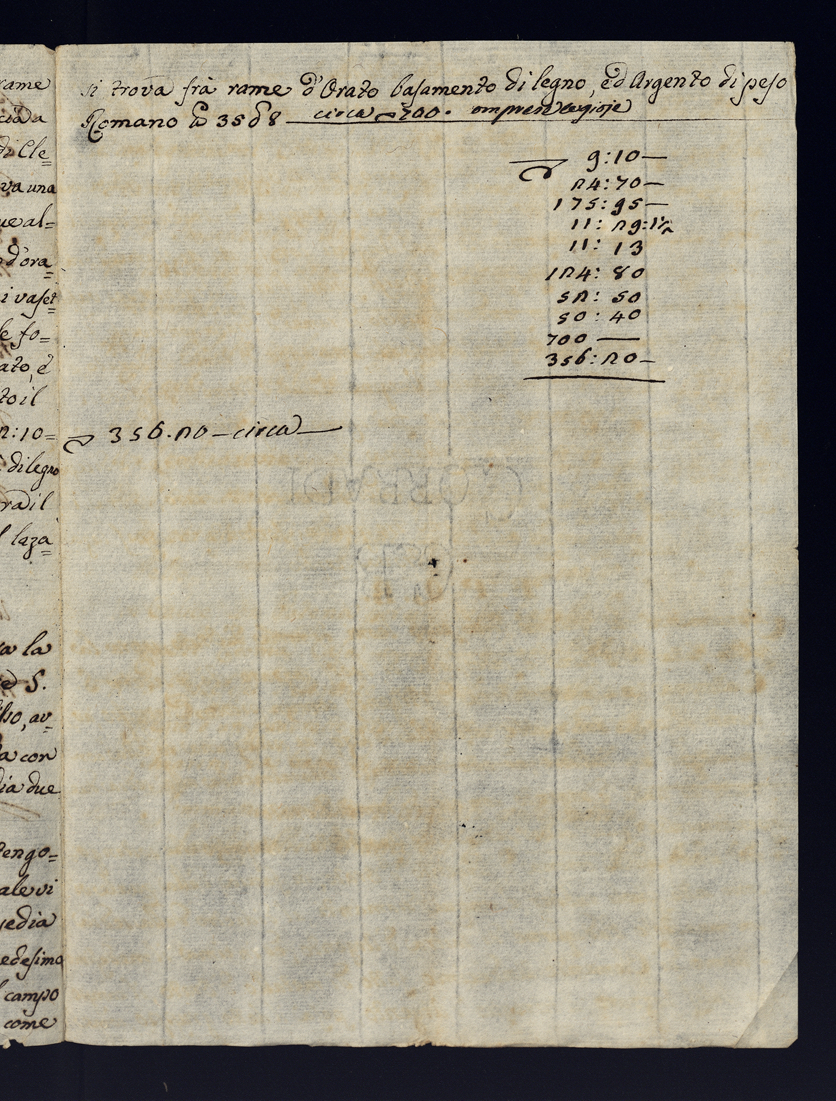 rame
cida
di Cle=
va una
ue al=
d'ora=
i vaset
le fo=
ato, e
to il
2:10=
di legno
ra il
laza=
a la
S.
so, av=
a con
ia due
tengo=
ale vi
sedia
edesimo
campo
come
si trova frà rame d'Orato basamento di legno, ed Argento di peso
circa 700.
Romano 35 8
9:10—
24:70—
175:95—
11:29:1/2
11:13
124:80
52:50
50:40
700—
356:20—
356.20—circa—
CORRADI